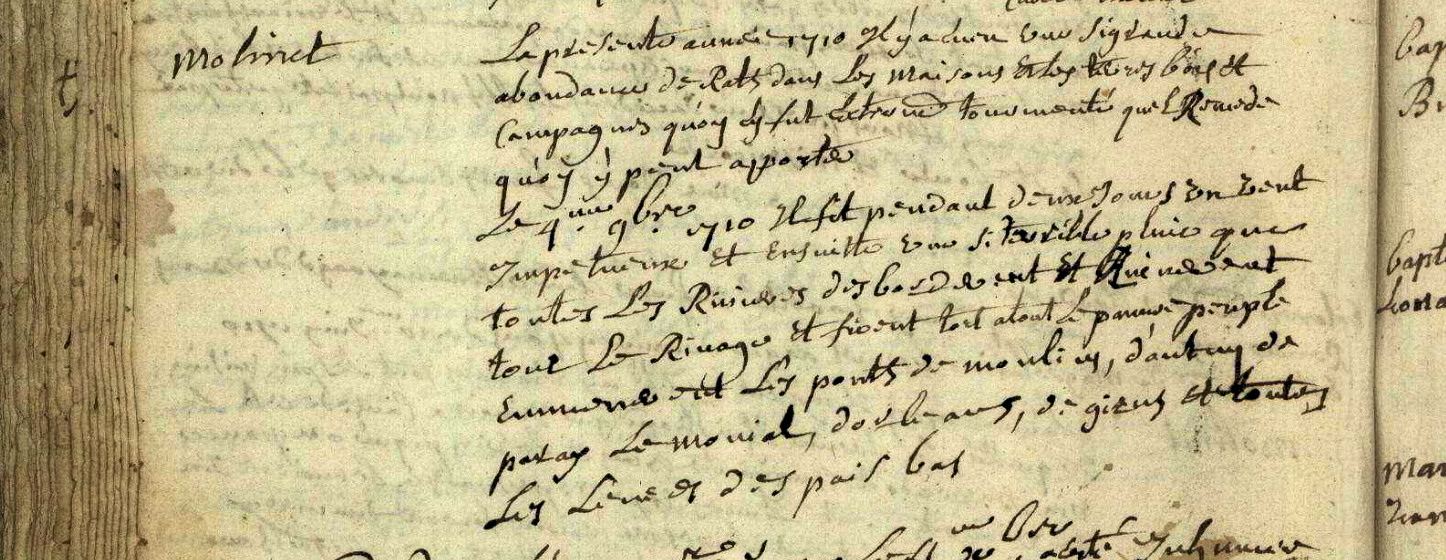 Molinet
La presente annee 1710 Il y a eu en une si grande
abondance de Rats dans Les maisons et les terres bois et
Campagnes qu'on en fut tourmenté quel Remede
qu'on y peut apporter
Le 4me 9bre 1710 Il fit pendant deux Jours un vent
Impetueux et Ensuitte une si terrible pluie que
toutes Les Rivieres desborderent Et Ruinerent
tout Le Rivage et firent tort a tout Le pauvre peuple
Emmenerent Les ponts de moulins, d'autun de
paray Le monial, dorleans, de giens et toutes
Les Levees des pais bas